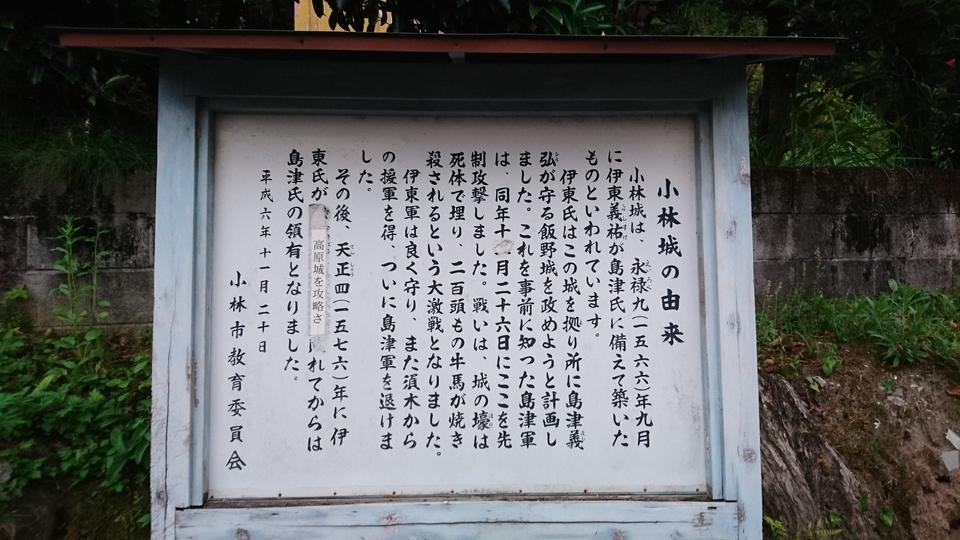 小林城の由来
小林城は、永禄九(一五六六)年九月
に伊東義祐が島津氏に備えて築いた
ものといわれています。
伊東氏はこの城を拠り所に島津義
弘が守る飯野城を攻めようと計画し
ました。これを事前に知った島津軍
は、同年十月二十六日にここを先
制攻撃しました。戦いは、城の壕は
死体で埋り、二百頭もの牛馬が焼き
殺されるという大激戦となりました。
伊東軍は良く守り、また須木から
の援軍を得、ついに島津軍を退けま
した。
その後、天正四(一五七六)年に伊
東氏が高原城を攻略されてからは
島津氏の領有となりました。
平成六年十一月二十日
小林市教育委員会